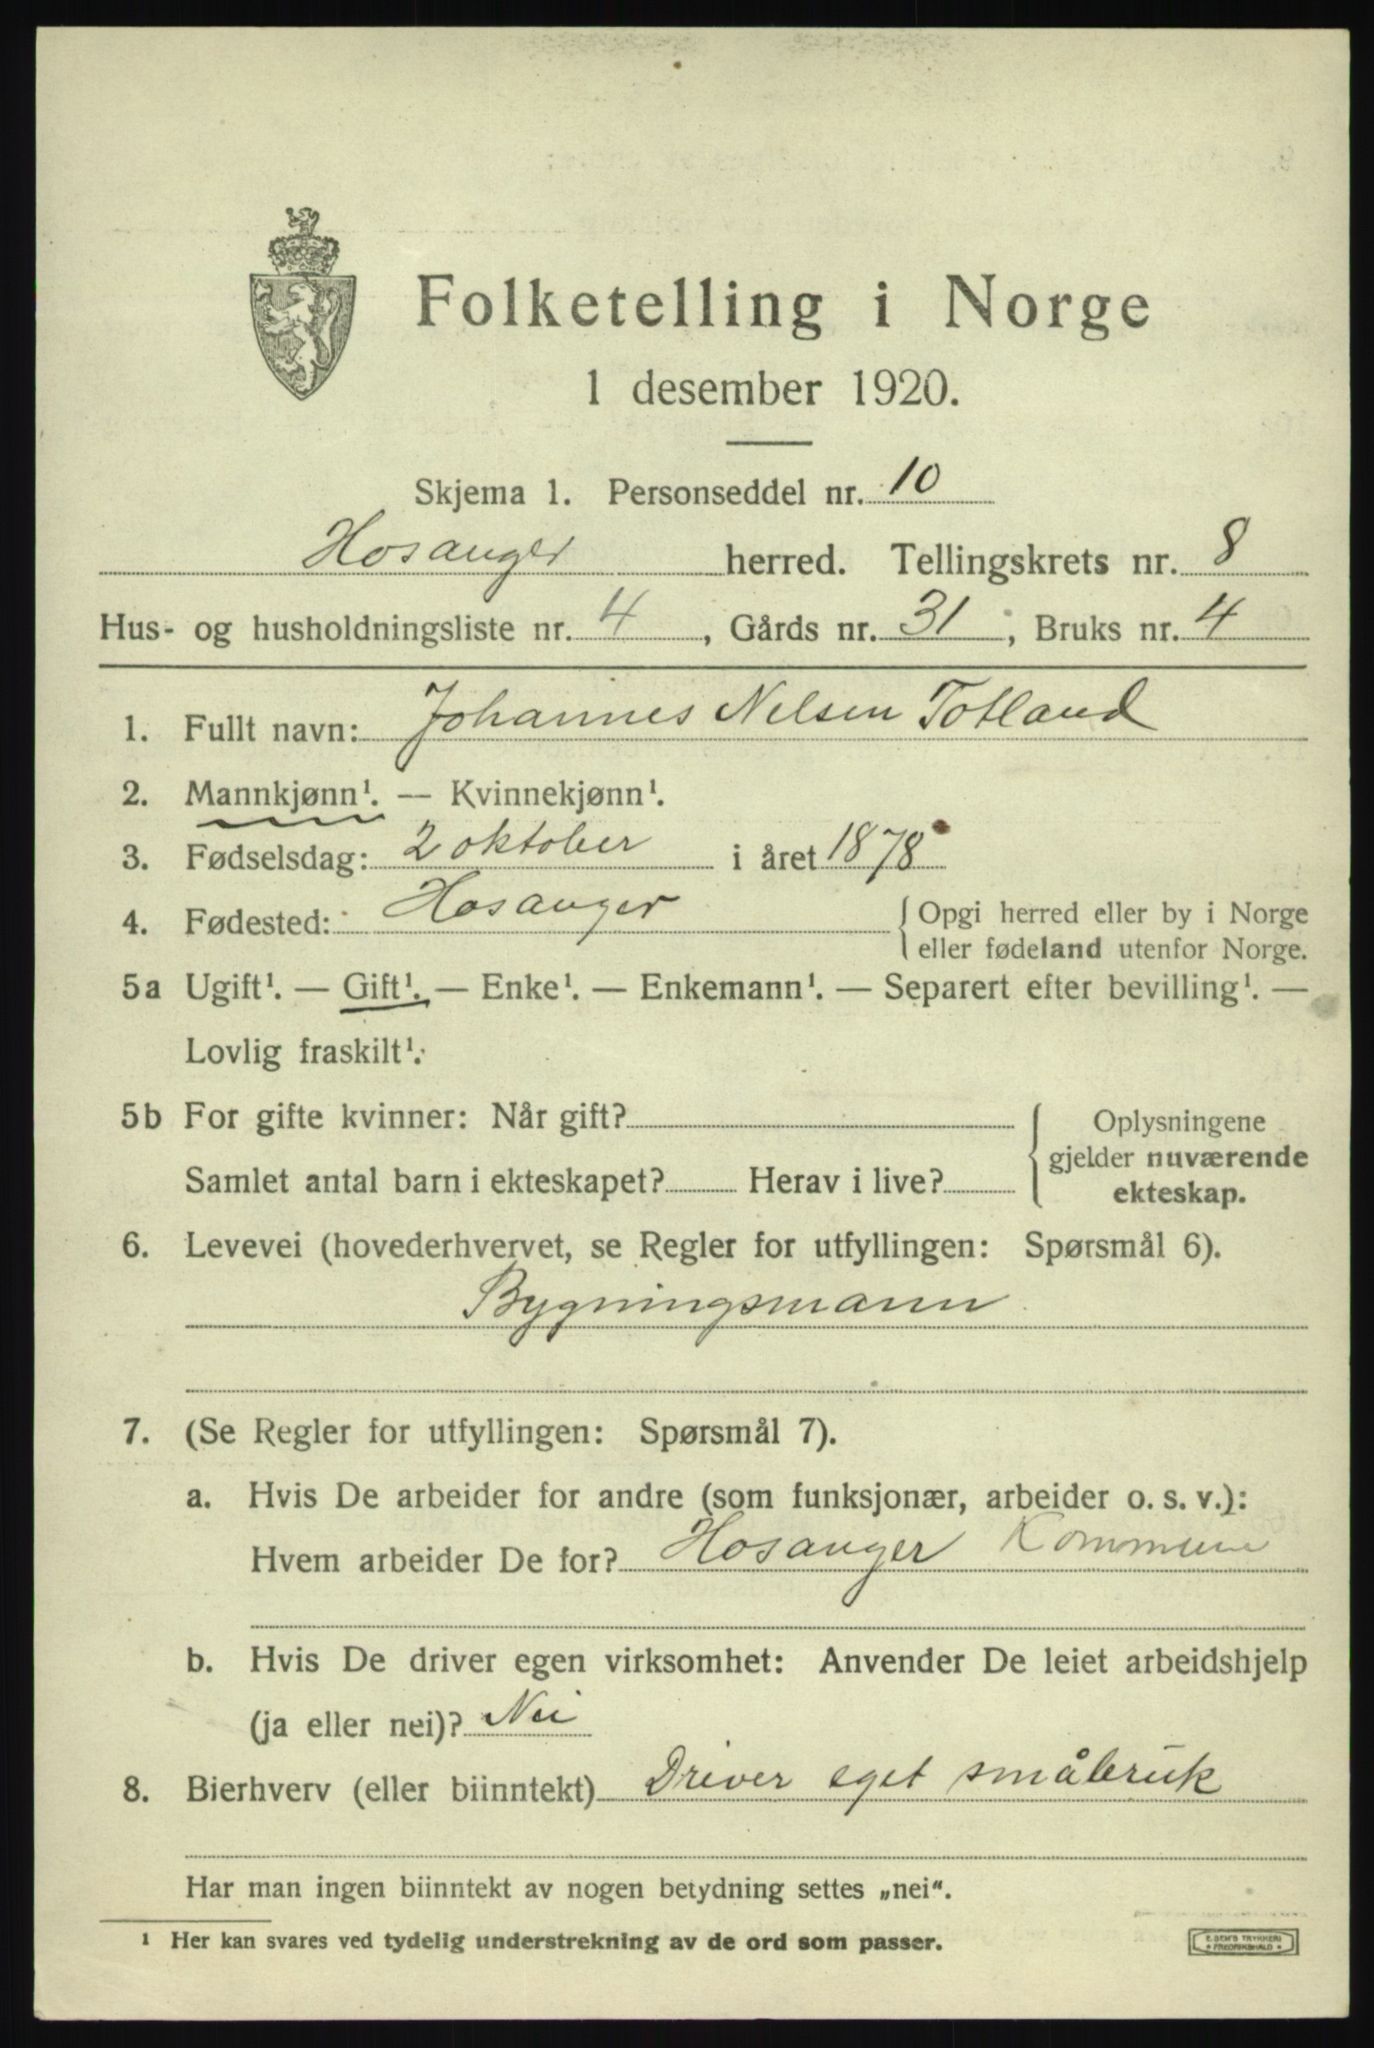 Folketelling i Norge
1 desember 1920.
Skjema 1. Personseddel nr. 10
Hosanger herred. Tellingskrets nr. 8
Hus- og husholdningsliste nr. 4, Gårds nr. 31, Bruks nr. 4
1. Fullt navn: Johannes Nelsen Totland
2. Mannkjønn¹. — Kvinnekjønn¹.
3. Fødselsdag: 2 oktober i året 1878
4. Fødested: Hosanger { Opgi herred eller by i Norge
eller fødeland utenfor Norge.
5a Ugift¹. — Gift¹. — Enke¹. — Enkemann¹. — Separert efter bevilling¹. —
Lovlig fraskilt¹.
5b For gifte kvinner: Når gift? { Oplysningene
gjelder nuværende
Samlet antal barn i ekteskapet? Herav i live? ekteskap.
6. Levevei (hovederhvervet, se Regler for utfyllingen: Spørsmål 6).
Bygningsmann
7. (Se Regler for utfyllingen: Spørsmål 7).
a. Hvis De arbeider for andre (som funksjonær, arbeider o. s. v.):
Hvem arbeider De for? Hosanger Kommune
b. Hvis De driver egen virksomhet: Anvender De leiet arbeidshjelp
(ja eller nei)? Nei
8. Bierhverv (eller biinntekt) Driver eget småbruk
Har man ingen biinntekt av nogen betydning settes „nei“.
¹ Her kan svares ved tydelig understrekning av de ord som passer.
E. SEM'S TRYKKERI
FREDRIKSHALD